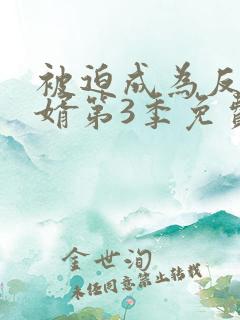 被迫成为反
婿第3季免费
金世洵
未经同意禁止转载